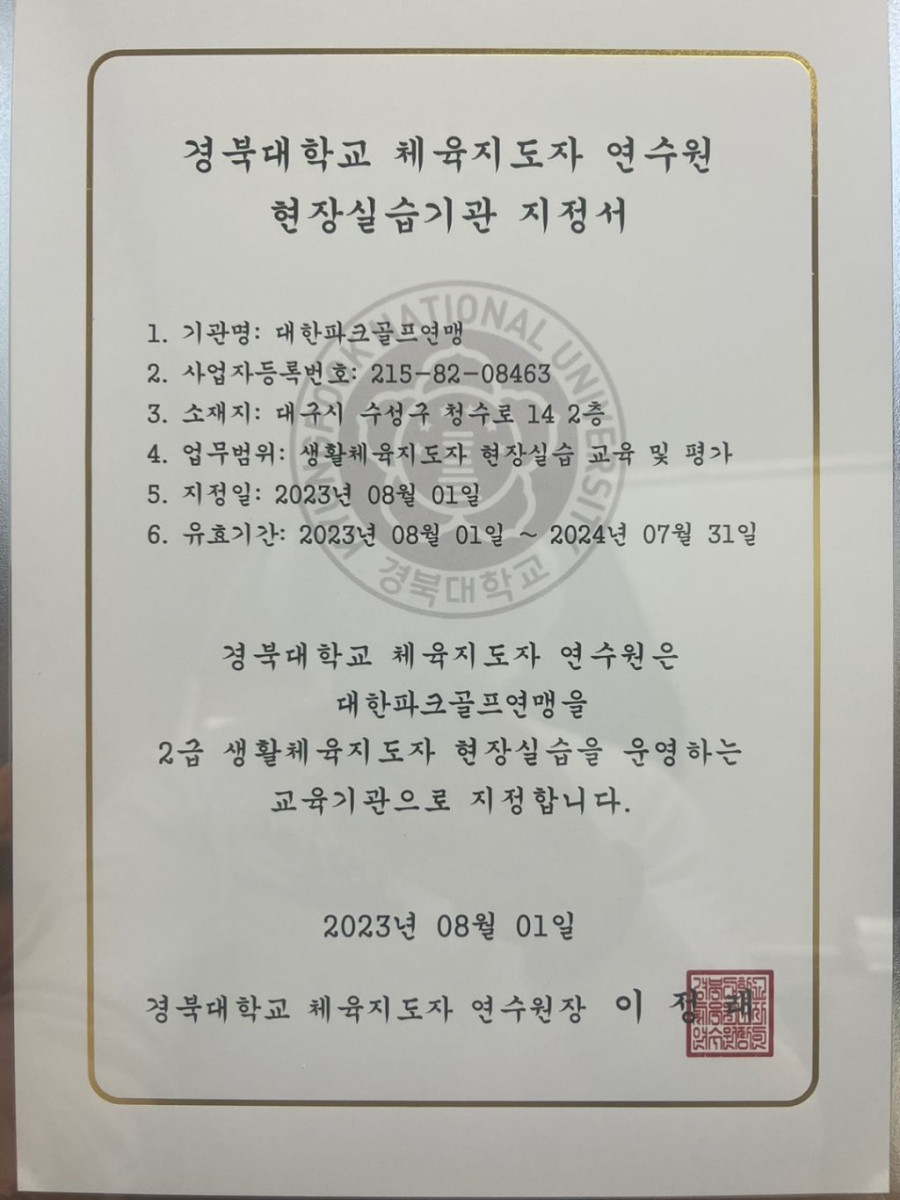 경북대학교 체육지도자 연수원
현장실습기관 지정서
KYUNGPOOK NATIONAL UNIVERSITY
경북대학교
1. 기관명: 대한파크골프연맹
2. 사업자등록번호: 215-82-08463
3. 소재지: 대구시 수성구 청수로 14 2층
4. 업무범위: 생활체육지도자 현장실습 교육 및 평가
5. 지정일: 2023년 08월 01일
6. 유효기간: 2023년 08월 01일 ~ 2024년 07월 31일
경북대학교 체육지도자 연수원은
대한파크골프연맹을
2급 생활체육지도자 현장실습을 운영하는
교육기관으로 지정합니다.
2023년 08월 01일
경북대학교 체육지도자 연수원장 이 정